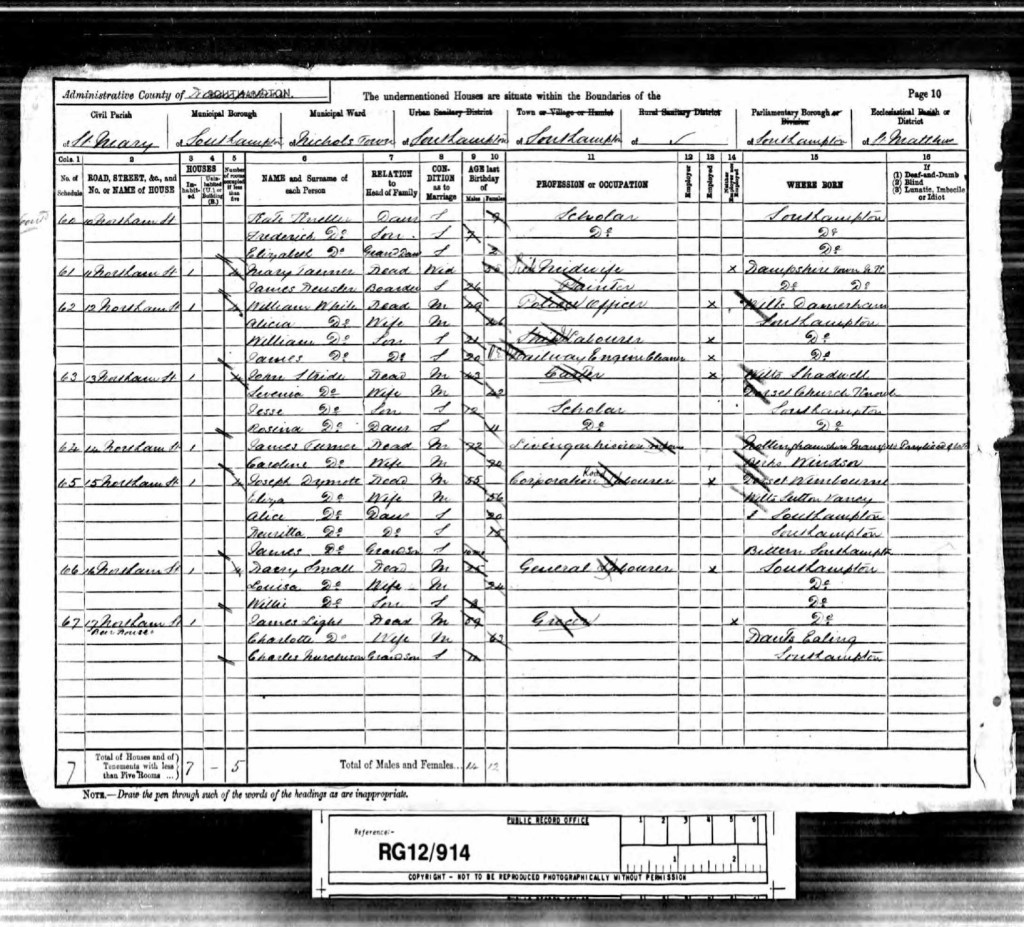 Administrative County of SOUTHAMPTON. The undermentioned Houses are situate within the Boundaries of the Page 10
Civil Parish Municipal Borough Municipal Ward Urban Sanitary District Town or Village or Hamlet Rural Sanitary District Parliamentary Borough or Division Ecclesiastical Parish or District
of St. Mary of Southampton of Nichols Town of Southampton of Southampton of of Southampton of St Matthew
Cols. 1 2 3 4 5 6 7 8 9 10 11 12 13 14 15 16
No. of Schedule ROAD, STREET, &c., and No. or NAME of HOUSE HOUSES Inhabited Uninhabited (U.) or Building (B.) Number of rooms occupied if less than five NAME and Surname of each Person RELATION to Head of Family CONDITION as to Marriage AGE last Birthday of Males Females PROFESSION or OCCUPATION Employer Employed Neither Employer nor Employed WHERE BORN If (1) Deaf-and-Dumb (2) Blind (3) Lunatic, Imbecile or Idiot
60 10 Northam St Kate Daur S 9 Scholar Southampton
Frederick Do Son S 7 Do Do
Elizabeth Do Grand Daur S 2 Do
61 11 Northam St 1 Mary Tanner Head Wid Midwife x Hampshire
James Boarder S 26 Painter Do Do
62 12 Northam St 1 William White Head M 49 Police Officer x Wilts Damerham
Alicia Do Wife M 46 Southampton
William Do Son S 21 Labourer x Do
James Do Do S 20 Railway Engine Cleaner x Do
63 13 Northam St 1 John Stride Head M 43 Carter x Wilts
Do Wife M 42 Dorset Church
Jesse Do Son S 12 Scholar Southampton
Rosina Do Daur S 11 Do Do
64 14 Northam St 1 James Turner Head M 72 Living on his own Nottinghamshire
Caroline Do Wife M 70 Berks Windsor
65 15 Northam St 1 Joseph Dymott Head M 55 Corporation Road Labourer x Dorset Wimbourne
Eliza Do Wife M 56 Wilts Sutton
Alice Do Daur S 20 Southampton
Henritta Do Do S 15 Southampton
James Do Grandson S Bittern Southampton
66 16 Northam St 1 Harry Small Head M 25 General Labourer x Southampton
Louisa Do Wife M 24 Do
Willie Do Son S Do
67 17 Northam St 1 James Light Head M 59 Grocer x Do
Charlotte Do Wife M 62 Hants Ealing
Charles Murchison Grandson S Southampton
7 Total of Houses and of Tenements with less than Five Rooms ... 7 – 5 Total of Males and Females... 14 12
NOTE.—Draw the pen through such of the words of the headings as are inappropriate.
PUBLIC RECORD OFFICE 1 2 3 4 5 6
Reference:-
RG12/914 1 2
COPYRIGHT - NOT TO BE REPRODUCED PHOTOGRAPHICALLY WITHOUT PERMISSION